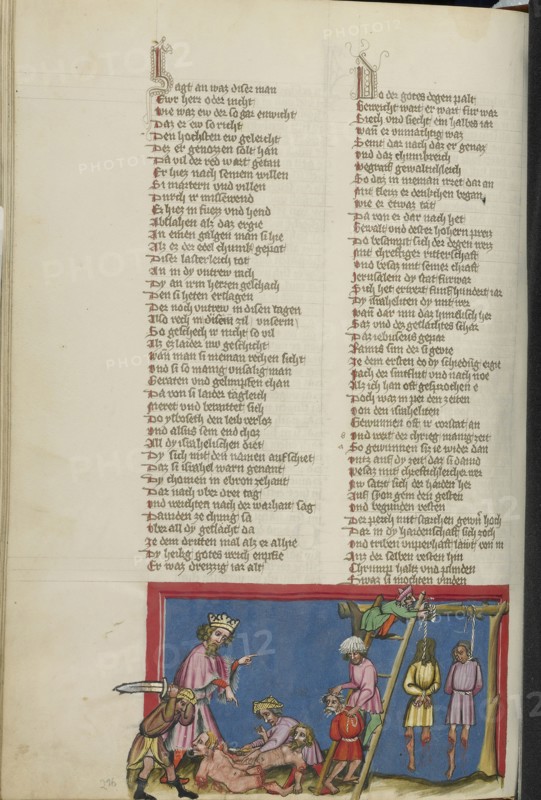 Sagt an waz diser man
Ewr herr oder nicht
Wie waz ew der so gar enwicht
Daz er ew so richt
Den hochsten ew geleicht
Der er genozzen solt han
Da vil der red wart getan
Er hiez nach seinem willen
Si martern und villen
Durch ir missewend
Er hiez in fuezz und hend
Abslahen als daz ergie
In einen galgen man si hie
Als er der edel chunik gepat
Diser lasterleich tot
An in dy untrew rach
Dy an irm herren geschach
Den si heten erslagen
Der noch untrew in disen tagen
Also rech in disem zil unserm
So geschech ir nicht so vil
Als er laider nu geschicht
Wan man si nieman rechen sicht
Und si so manig unsalig man
Geraten und gelimpfen chan
Da von si laider tagleich
Meret und
Do ysboseth den leib verlos
Und alsus sein end chos
All dy israhelischen diet
Dy sich mit dem namen auf schiet
Daz si israhel warn genant
Dy chomen in ebron zehant
Dar nach uber drei tag
Und weichten nach der warhait sag
Dauiden ze chunig sa
Uber all dy geslacht da
Ze dem dritten mal als er allhie
Dy heilig gotes weich enpfie
Er was dreizzig iar alt
Do der gotes degen palt
Geweicht wart er wart fur war
Siech und siecht ein halbes iar
Wan er unmachtig waz
Seint dar nach daz er genas
Und daz chunikreich
Begraif gewaltichleich
So daz in nieman irret dar an
Mit
Wie er etwaz tat
Da von er dar nach het
Gewalt und dester hohern preis
Do besampt sich der degen weis
Mit chreftiger ritterschaft
Und besaz mit seiner chraft
Jerusalem dy stat fur war
Sich het erwert funfhundert iar
Dy israheliten dy mit wer
Wan dar inn daz haimlisch her
Saz und der geslachtes schar
Daz iebuseus gepar
Kanns sun der si gevie
Ze dem ersten do dy schidung ergie
Nach der sintflut und nach noe
Als ich han oft gesprochen e
Doch war in per den zeiten
Von den israheliten
Gewunnen oft ir vorstat an
Und weit der chrieg manig zeit
So gewunnen sir ie wider dan
Untz auf dy zeit daz si dauid
Besaz mit chreftichleicher wer
Nu satzt sich der haiden her
Auf syon gein den gesten
Und begunden vesten
Der perch mit starchen gewer hoch
Dar in dy haidenschaft sich zoch
Und triben unperhaft lawt von in
Auz der selben vesten hin
Chrump halts und plinden
Swaz si mochten vinden
236